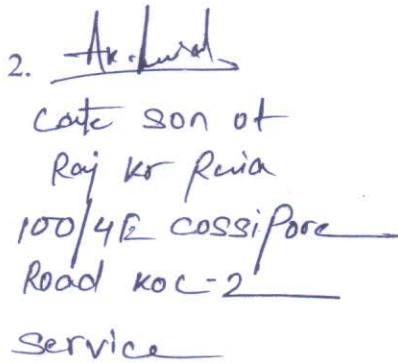 2.
Late son of
Raj Kr Ruia
100/4E COSSipore
Road KOL-2
Service